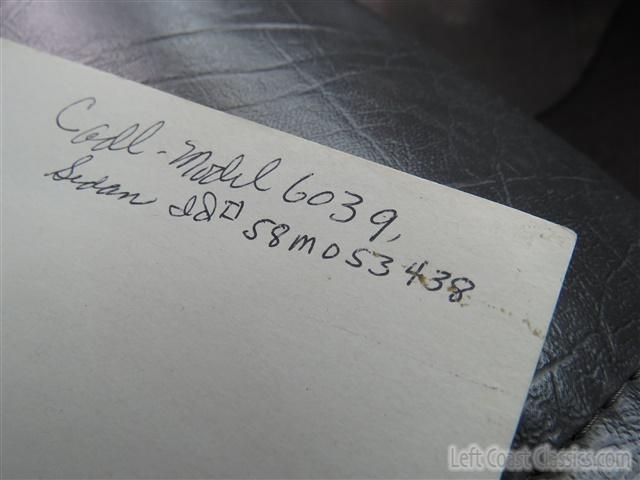 Cadl - Model 6039,
Sedan ID# 58M053438
Left Coast Classics.com